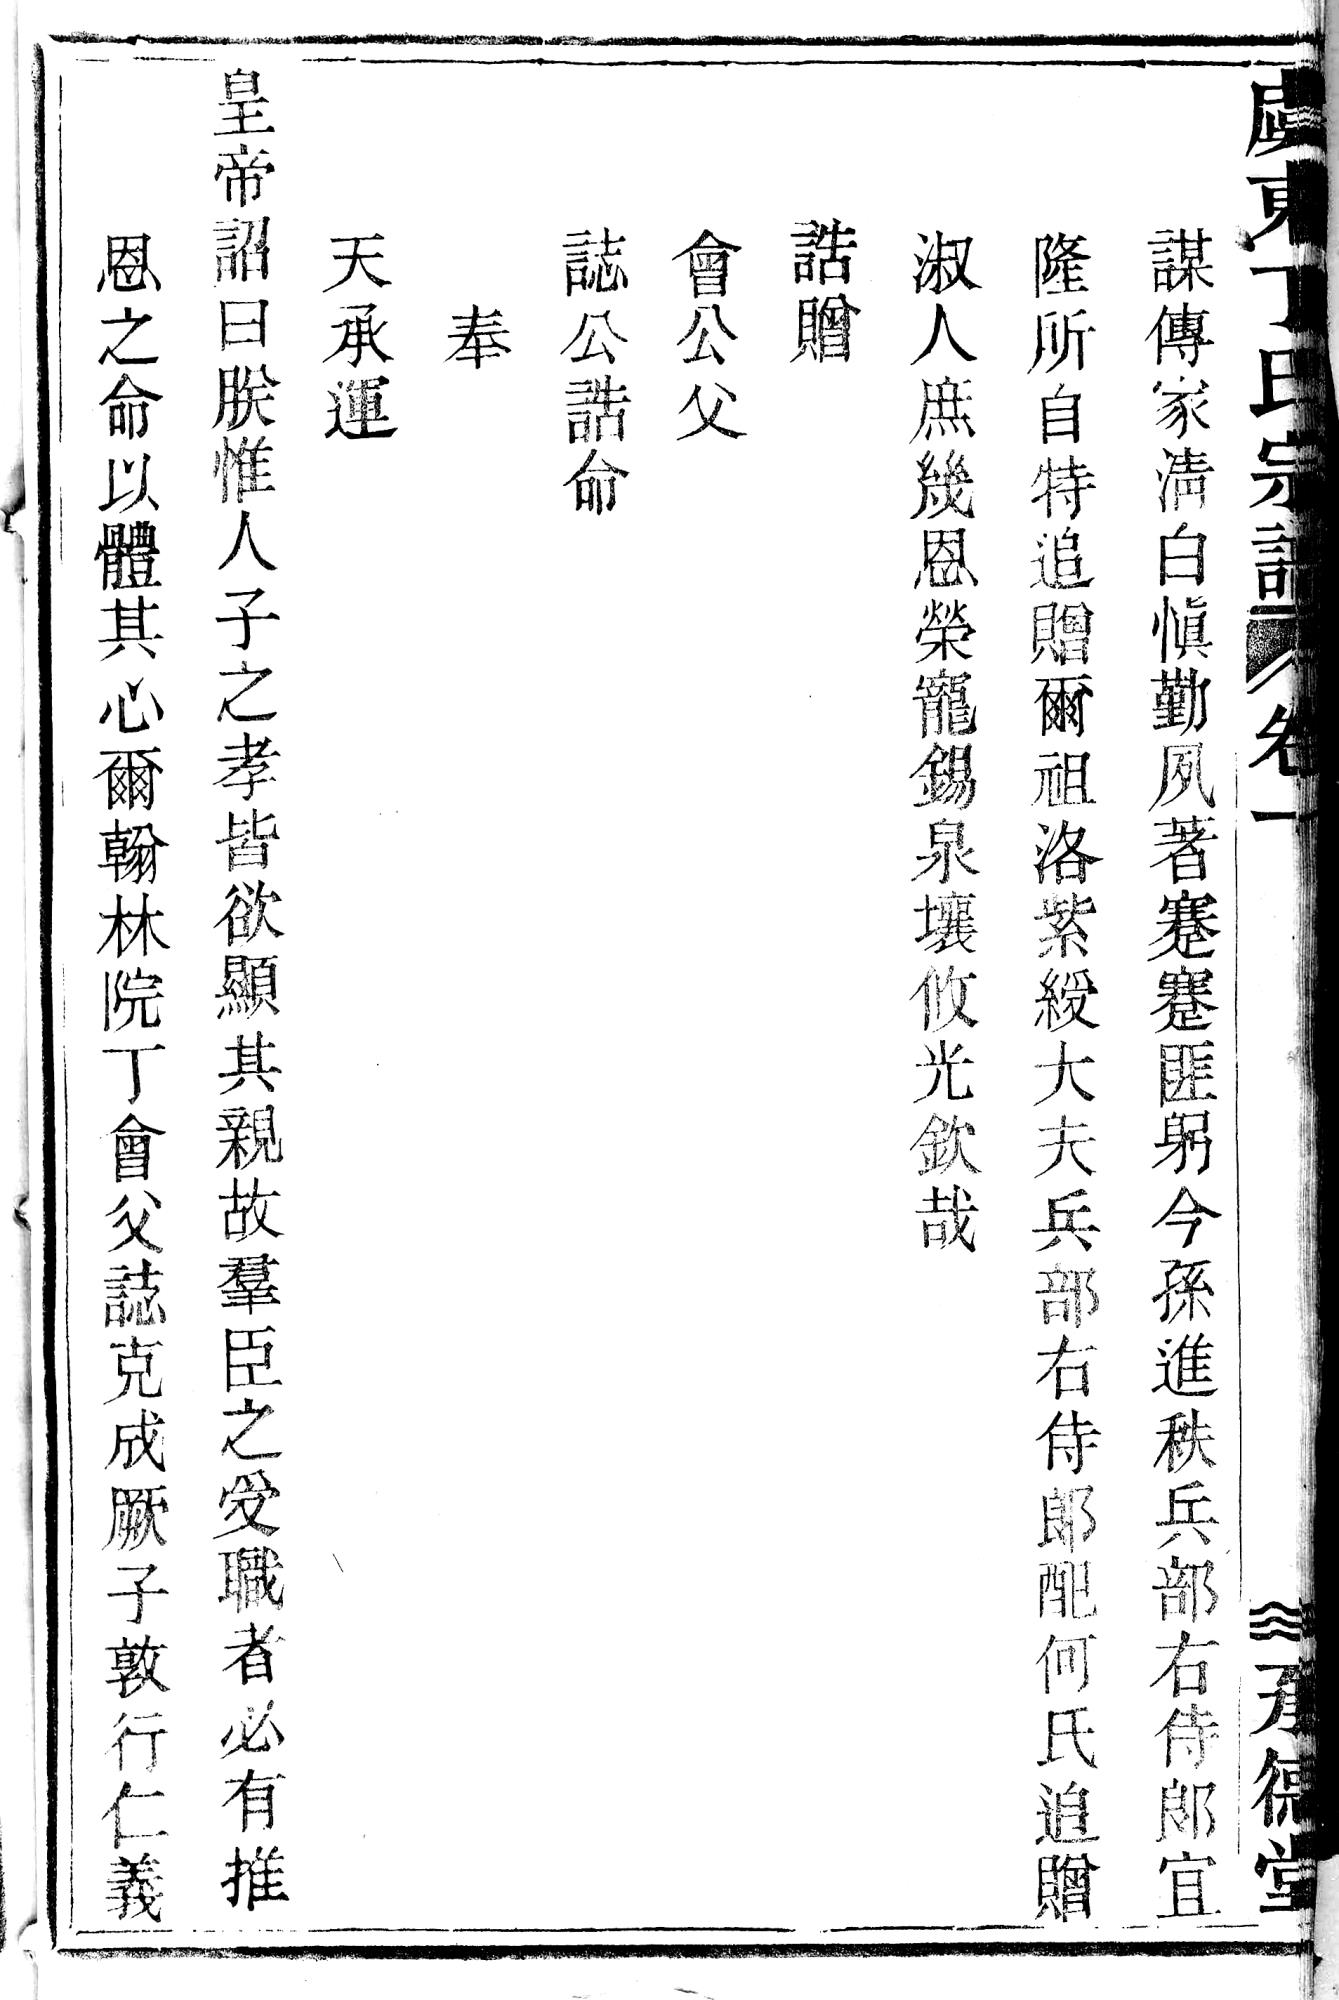 虞東丁氏宗譜 卷一 承德堂
謀傳家淸白愼勤夙著蹇蹇匪躬今孫進秩兵部右侍郞宜
隆所自特追贈爾祖洛紫綬大夫兵部右侍郞配何氏追贈
淑人庶幾恩榮寵錫泉壤攸光欽哉
誥贈
會公父
誌公誥命
奉
天承運
皇帝詔曰朕惟人子之孝皆欲顯其親故羣臣之受職者必有推
恩之命以體其心爾翰林院丁會父誌克成厥子敦行仁義